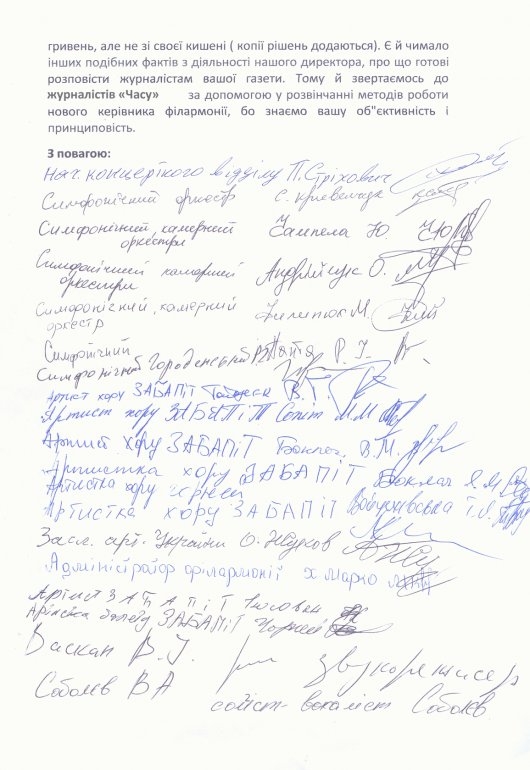 гривень, але не зі своєї кишені ( копії рішень додаються). Є й чимало
інших подібних фактів з діяльності нашого директора, про що готові
розповісти журналістам вашої газети. Тому й звертаємось до
журналістів «Часу» за допомогою у розвінчанні методів роботи
нового керівника філармонії, бо знаємо вашу об"єктивність і
принциповість.
З повагою:
нач. концертного відділу П. Стріхович
Симфонічний оркестр С.
Симфонічний, камерний оркестри Ю
Симфонічний камерний оркестри Андрійчук О.
Симфонічний, камерний оркестр М.
Симфонічний Р. І.
Симфонічний Городенський В
Артист хору ЗАБАПіТ В. Г.
Артист хору ЗАБАПіТ М М
Артист хору ЗАБАПІТ В. М.
Артистка хору ЗАБАПІТ Я. М
Артистка хору
Артистка хору ЗАБАПІТ Т. Л.
Засл. арт. України О. Жуков
Адміністратор філармонії Х Марко
Артист ЗАБАПІТ
Артистка балету ЗАБАПІТ Чорней
Васкан В. І. звукорежисер
Соболєв В А соліст-вокаліст Соболєв